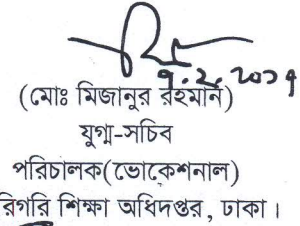 ৭.২.২০১৭
(মোঃ মিজানুর রহমান)
যুগ্ম-সচিব
পরিচালক(ভোকেশনাল)
রিগরি শিক্ষা অধিদপ্তর, ঢাকা।